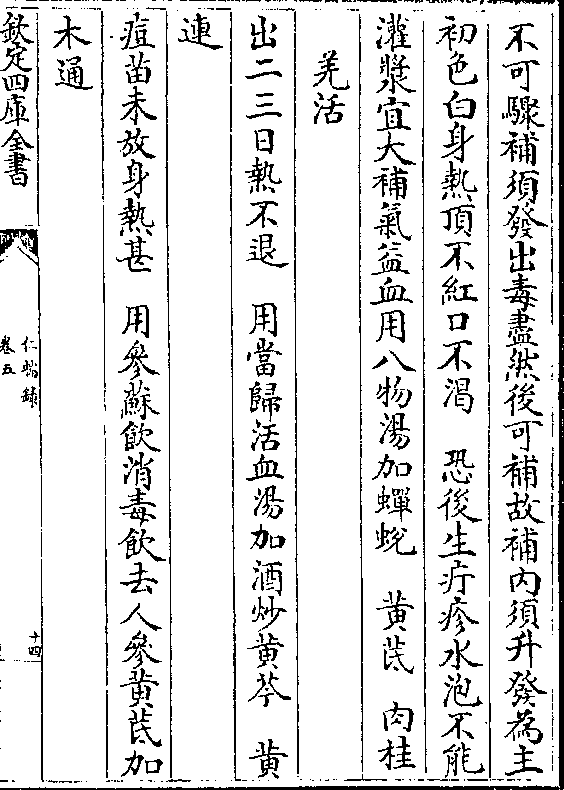 不可驟補須發出毒盡然後可補故補內須升發為主
初色白身熱頂不紅口不渴　恐後生疔疹水泡不能
灌漿宜大補氣益血用八物湯加蟬蛻　黄芪　肉桂
羌活
出二三日熱不退　用當歸活血湯加酒炒黄芩　黄
連
痘苗未放身熱甚　用參蘇飲消毒飲去人參黄芪加
木通
欽定四庫全書
仁端録
卷五
十四